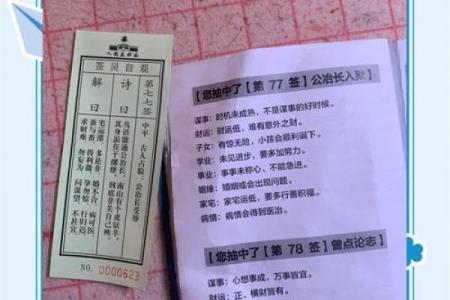 观音灵签
第七七签 中平 古人占验 公冶长受辱
诗曰
鸟语能通公冶长,南山有个虎驮羊,
其身虽在于缧绁,到底非关自己殃。
解曰
NO. U000623
【您抽中了【第 77 签】公冶长入狱】
谋事:时机未成熟,不是谋事的好时候。
财运:财运低,难有意外之财。
子女:有惊无险,小孩会顺利诞下。
学业:未见进步,要多加努力。
事业:事事未称心、不能急进。
姻缘:婚姻或会出现问题。
家宅:家宅运低,要多行善积福。
病情:病情会得到医治。
【您抽中了【第 78 签】曾点论志】
谋事:心想事成,万事皆宜。
财运:正、横财皆有。